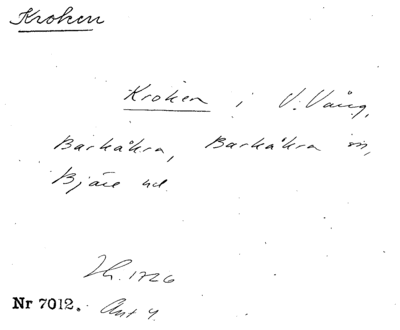 Kroken
Kroken i V. Vång,
Barkåkra, Barkåkra sn,
Bjäre hd.
Lh. 1726
Nr 7012. Ant 4.